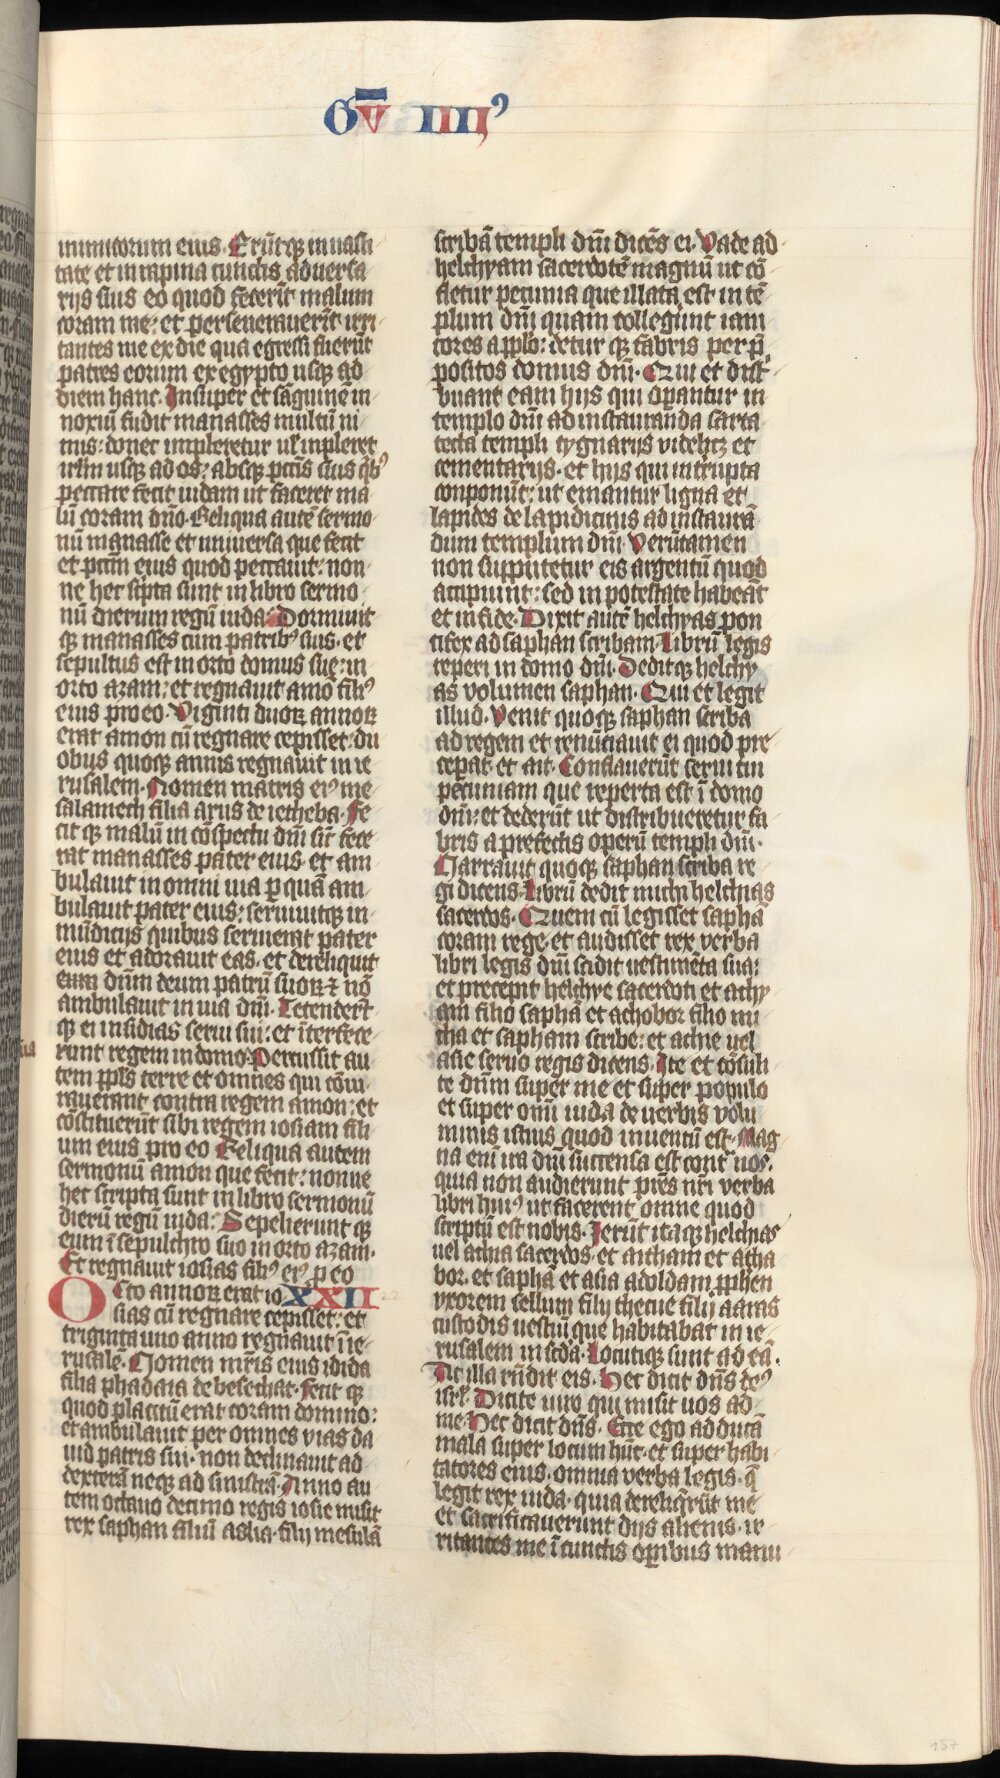 Gu̅ IIII⁹
inimicorum eius. Erūtqꝫ in uasti
tate et in rapina cunctis aduersa
rijs suis eo quod fecerīt malum
coram me: et perseuerauerīt irri
tantes me ex die qua egressi fuerūt
patres eorum ex egypto usqꝫ ad
diem hanc. Insuper et sāguinē in
noxiū fudit manasses multū ni
mis: donec impleretur ul' impleret
irl̄m usqꝫ ad os: absqꝫ pctīs suis qͥbꝰ
peccare fecit iudam ut faceret ma
lū coram dn̄o. Reliqua autē sermo
nū manasse et uniuersa que fecit
et pctm̄ eius quod peccauit: non
ne hec scͥpta sunt in libro sermo
nū dierum regū iuda. Dormiuit
qꝫ manasses cum patribꝰ suis. et
sepultus est in orto domus sue: in
orto azam: et regnauit amō filiꝰ
eius pro eo. Viginti duoꝝ annoꝝ
erat amon cū regnare cepisset: du
obus quoqꝫ annis regnauit in ie
rusalem. Nomen matris eiꝰ me
salamech filia arus de ietheba. Fe
cit qꝫ malū in cōspectu dn̄i sic̄ fece
rat manasses pater eius. et am
bulauit in omni uia ꝑ quā am
bulauit pater eius: seruiuitqꝫ in
mūdicijs quibus seruierat pater
eius et adorauit eas. et dereliquit
eum dn̄m deum patrū suoꝝ ⁊ nō
ambulauit in uia dn̄i. Tetendert̄
qꝫ ei insidias serui sui: et īterfece
runt regem in domo. Percussit au
tem ppl̄s terre et omnes qui cōiu
rauerant contra regem amon: et
cōstituerūt sibi regem iosiam fili
um eius pro eo Reliqua autem
sermonū amon que fecit: nonne
hec scripta sunt in libro sermonū
dierū regū iuda: Sepelierunt qꝫ
eum ī sepulchro suo in orto azam.
Et regnauit iosias filiꝰ eiꝰ ꝓ eo
Octo annoꝝ erat io XXII 22
sias cū regnare cepisset: et
triginta uno anno regnauit ī ie
rusalē. Nomen mr̄is eius idida
filia phadaia de besechat. Fecit qꝫ
quod placitū erat coram domino:
et ambulauit per omnes vias da
uid patris sui. non declinauit ad
dexterā neqꝫ ad sinistrā. Anno au
tem octauo decimo regis iosie misit
rex saphan filiū aslia. filij mesulā
scribā templi dn̄i dicēs ei. Vade ad
helchyam sacerdotē magnū ut cō
fletur pecunia que illata est in tē
plum dn̄i quam collegūnt iani
tores a ppl̄o: detur qꝫ fabris per p̄
positos domus dn̄i. Qui et dist̄
buant eam hijs qui oꝑantur in
templo dn̄i ad instauranda sarta
tecta templi tygnarijs videlicꝫ et
cementarijs. et hijs qui intrupta
conponūt: ut emantur ligna et
lapides de lapidicinis ad instaurā
dum templum dn̄i. Verūtamen
non supputetur eis argentū quod
accipiunt: sed in potestate habeāt
et in fide. Dixit autē helchyas pon
tifex ad saphan scribam. Librū legis
reperi in domo dn̄i. Deditqꝫ helchy
as volumen saphan. Qui et legit
illud. Venit quoqꝫ saphan scriba
ad regem et renūciauit ei quod pre
ceꝑat. et ait. Conflauerūt serui tui
pecuniam que reperta est ī domo
dn̄i: et dederūt ut distribueretur fa
bris a prefectis operū templi dn̄i.
Narrauit quoqꝫ saphan scriba re
gi dicens. Librū dedit michi helchias
sacerdos. Quem cū legisset saphā
coram rege. et audisset rex verba
libri legis dn̄i scidit uestimēta sua:
et precepit helchye sacerdoti et achy
am filio saphā et achobor filio mi
cha et sapham scribe: et achie uel
asie seruo regis dicens. Ite et cōsuli
te dn̄m super me et super populo
et super omi iuda de uerbis volu
minis istius quod inuentū est. Mag
na eni ira dn̄i succensa est contͣ uos.
quia non audierunt pr̄es nr̄i verba
libri huiꝰ ut facerent omne quod
scriptū est nobis. Ierūt itaqꝫ helchias
uel achia sacerdos. et aicham et acha
bor. et saphā et asia ad oldam ꝓphen
vxorem sellum filij thecue filij aaras
custodis uestiū que habitabat in ie
rusalem in scd̄a. Locutiqꝫ sunt ad eā.
Et illa rn̄dit eis. Hec dicit dn̄s deꝰ
isrl̄. Dicite uiro qui misit uos ad
me. Hec dicit dn̄s. Ecce ego adducā
mala super locum hūc. et super habi
tatores eius. omnia verba legis. q̄
legit rex iuda. quia dereliq̄rūt me
et sacrificauerunt dijs alienis. ir
ritantes me ī cunctis oꝑibus manu
157